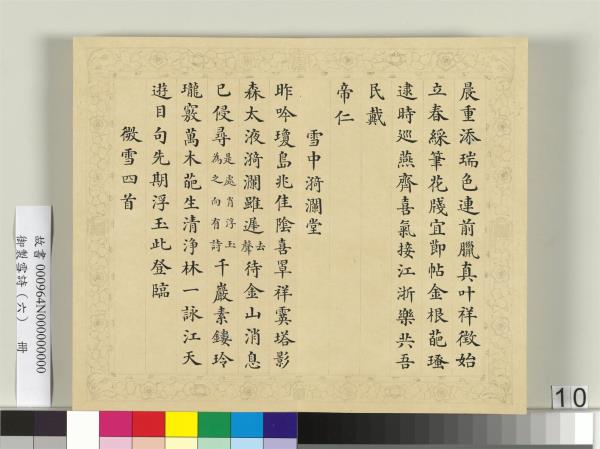 晨重添瑞色連前臘真叶祥徵始
立春綵筆花牋宜即帖金根葩瑵
逮時巡燕齊喜氣接江浙樂共吾
民戴
帝仁
雪中漪瀾堂
昨吟瓊島兆佳陰喜罩祥霙塔影
森太液漪瀾雖遲去聲待金山消息
已侵尋是處肖浮玉為之向有詩千巖素鏤玲
瓏竅萬木葩生清淨林一詠江天
遊目句先期浮玉此登臨
微雪四首
故書 000964N000000000
御製雪詩(六) 冊
10